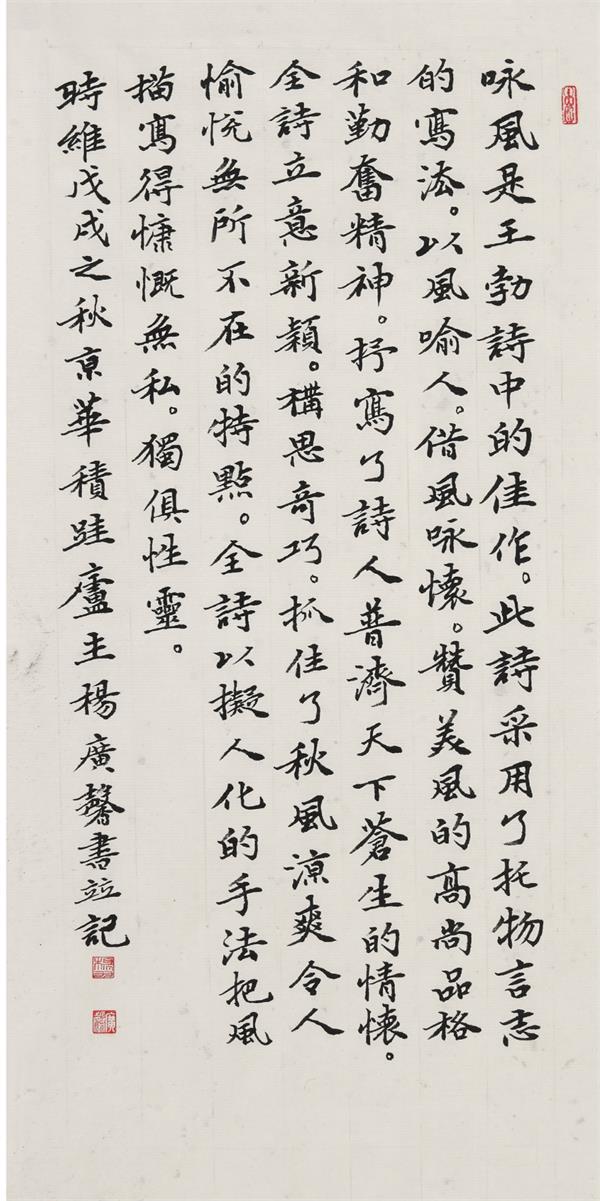 咏風是王勃詩中的佳作。此詩采用了托物言志
的寫法。以風喻人。借風咏懷。贊美風的高尚品格
和勤奮精神。抒寫了詩人普濟天下蒼生的情懷。
全詩立意新穎。構思奇巧。抓住了秋風涼爽令人
愉悅無所不在的特點。全詩以擬人化的手法把風
描寫得慷慨無私。獨俱性靈。
時維戊戌之秋京華積跬廬主楊廣馨書並記